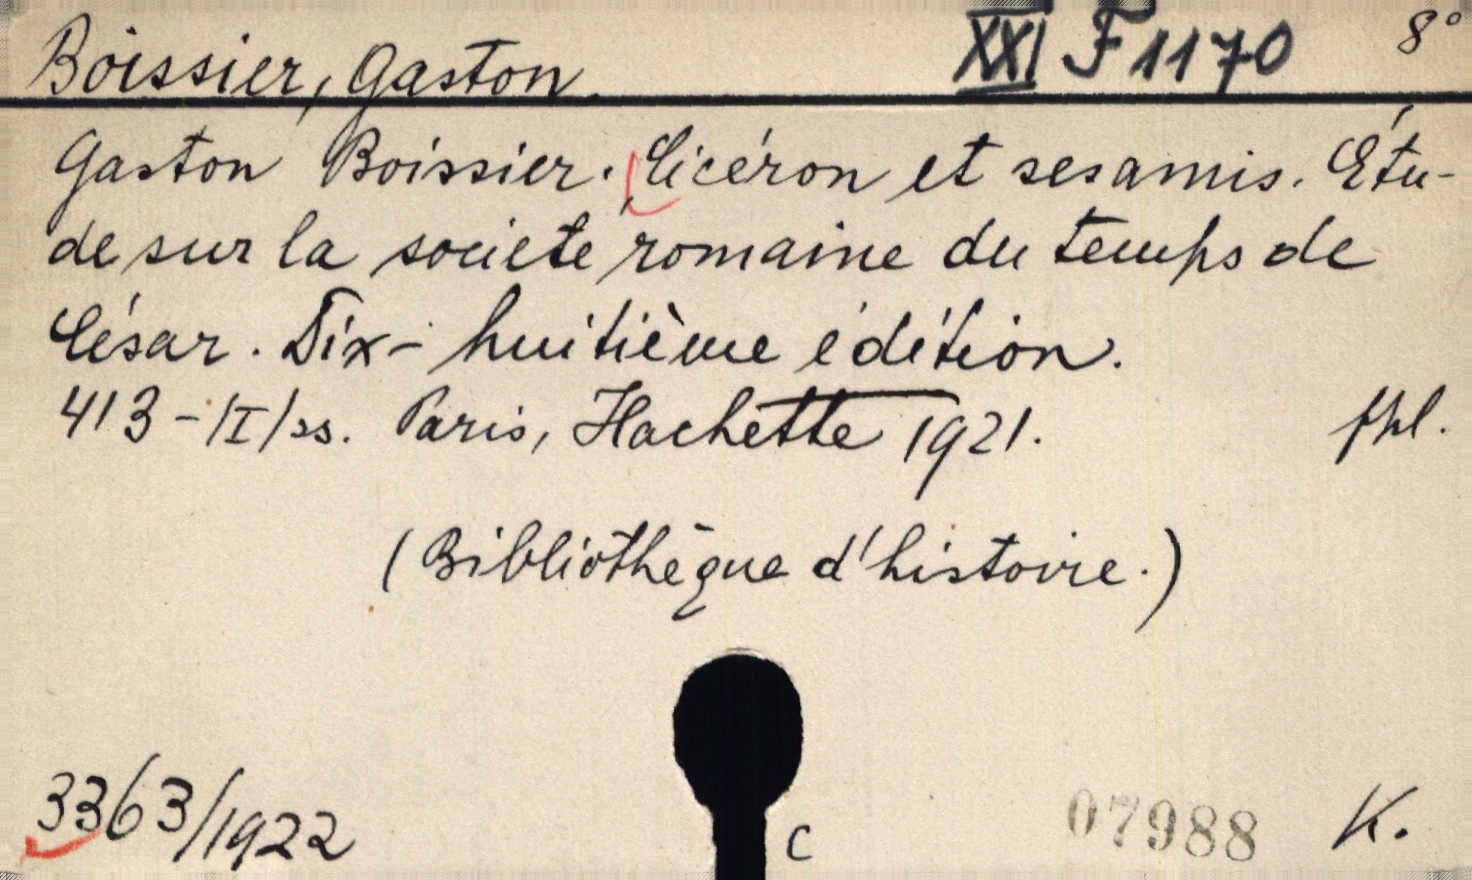 Boissier, Gaston. XXI F 1170 8°
Gaston Boissier. Cicéron et ses amis. Étu-
de sur la societé romaine du temps de
César. Dix-huitième édition.
413-/I/ss. Paris, Hachette 1921. fpl.
(Bibliothèque d'histoire.)
3363/1922 C 07988 K.